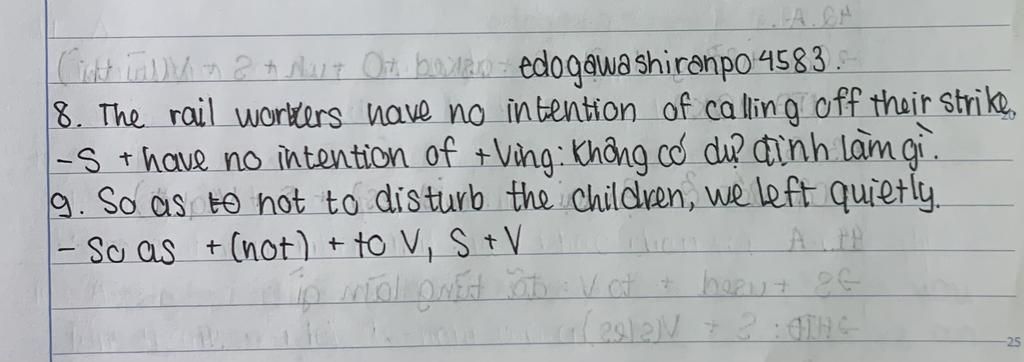 edogawashiranpo4583.
8. The rail workers have no intention of calling off their strike.
- S + have no intention of + Ving: Không có dự định làm gì.
9. So as to not to disturb the children, we left quietly.
- So as + (not) + to V, S + V
25